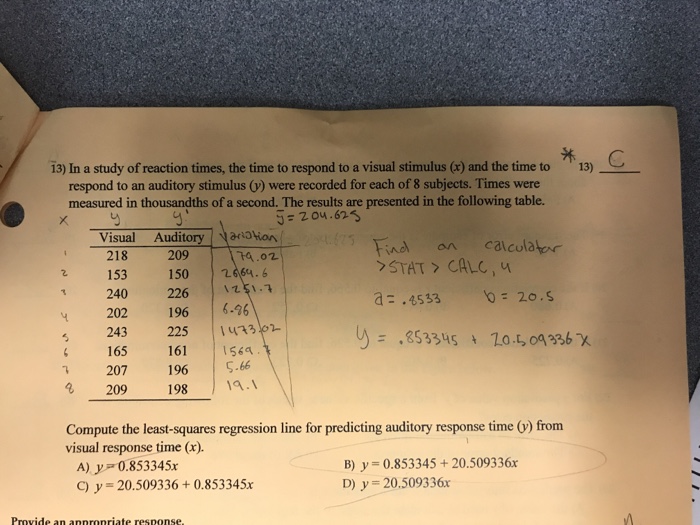 13) In a study of reaction times, the time to respond to a visual stimulus (x) and the time to
respond to an auditory stimulus (y) were recorded for each of 8 subjects. Times were
measured in thousandths of a second. The results are presented in the following table.
* 13) C
x y y' ȳ = 204.625
Visual Auditory Variation
1 218 209 179.02
2 153 150 2664.6
3 240 226 1251.7
4 202 196 6.96
5 243 225 1473.02
6 165 161 1569.7
7 207 196 5.66
8 209 198 19.1
Find on calculator
>STAT > CALC, 4
a = .8533 b = 20.5
y = .853345 + 20.509336x
Compute the least-squares regression line for predicting auditory response time (y) from
visual response time (x).
A) y = 0.853345x B) y = 0.853345 + 20.509336x
C) y = 20.509336 + 0.853345x D) y = 20.509336x
Provide an appropriate response.